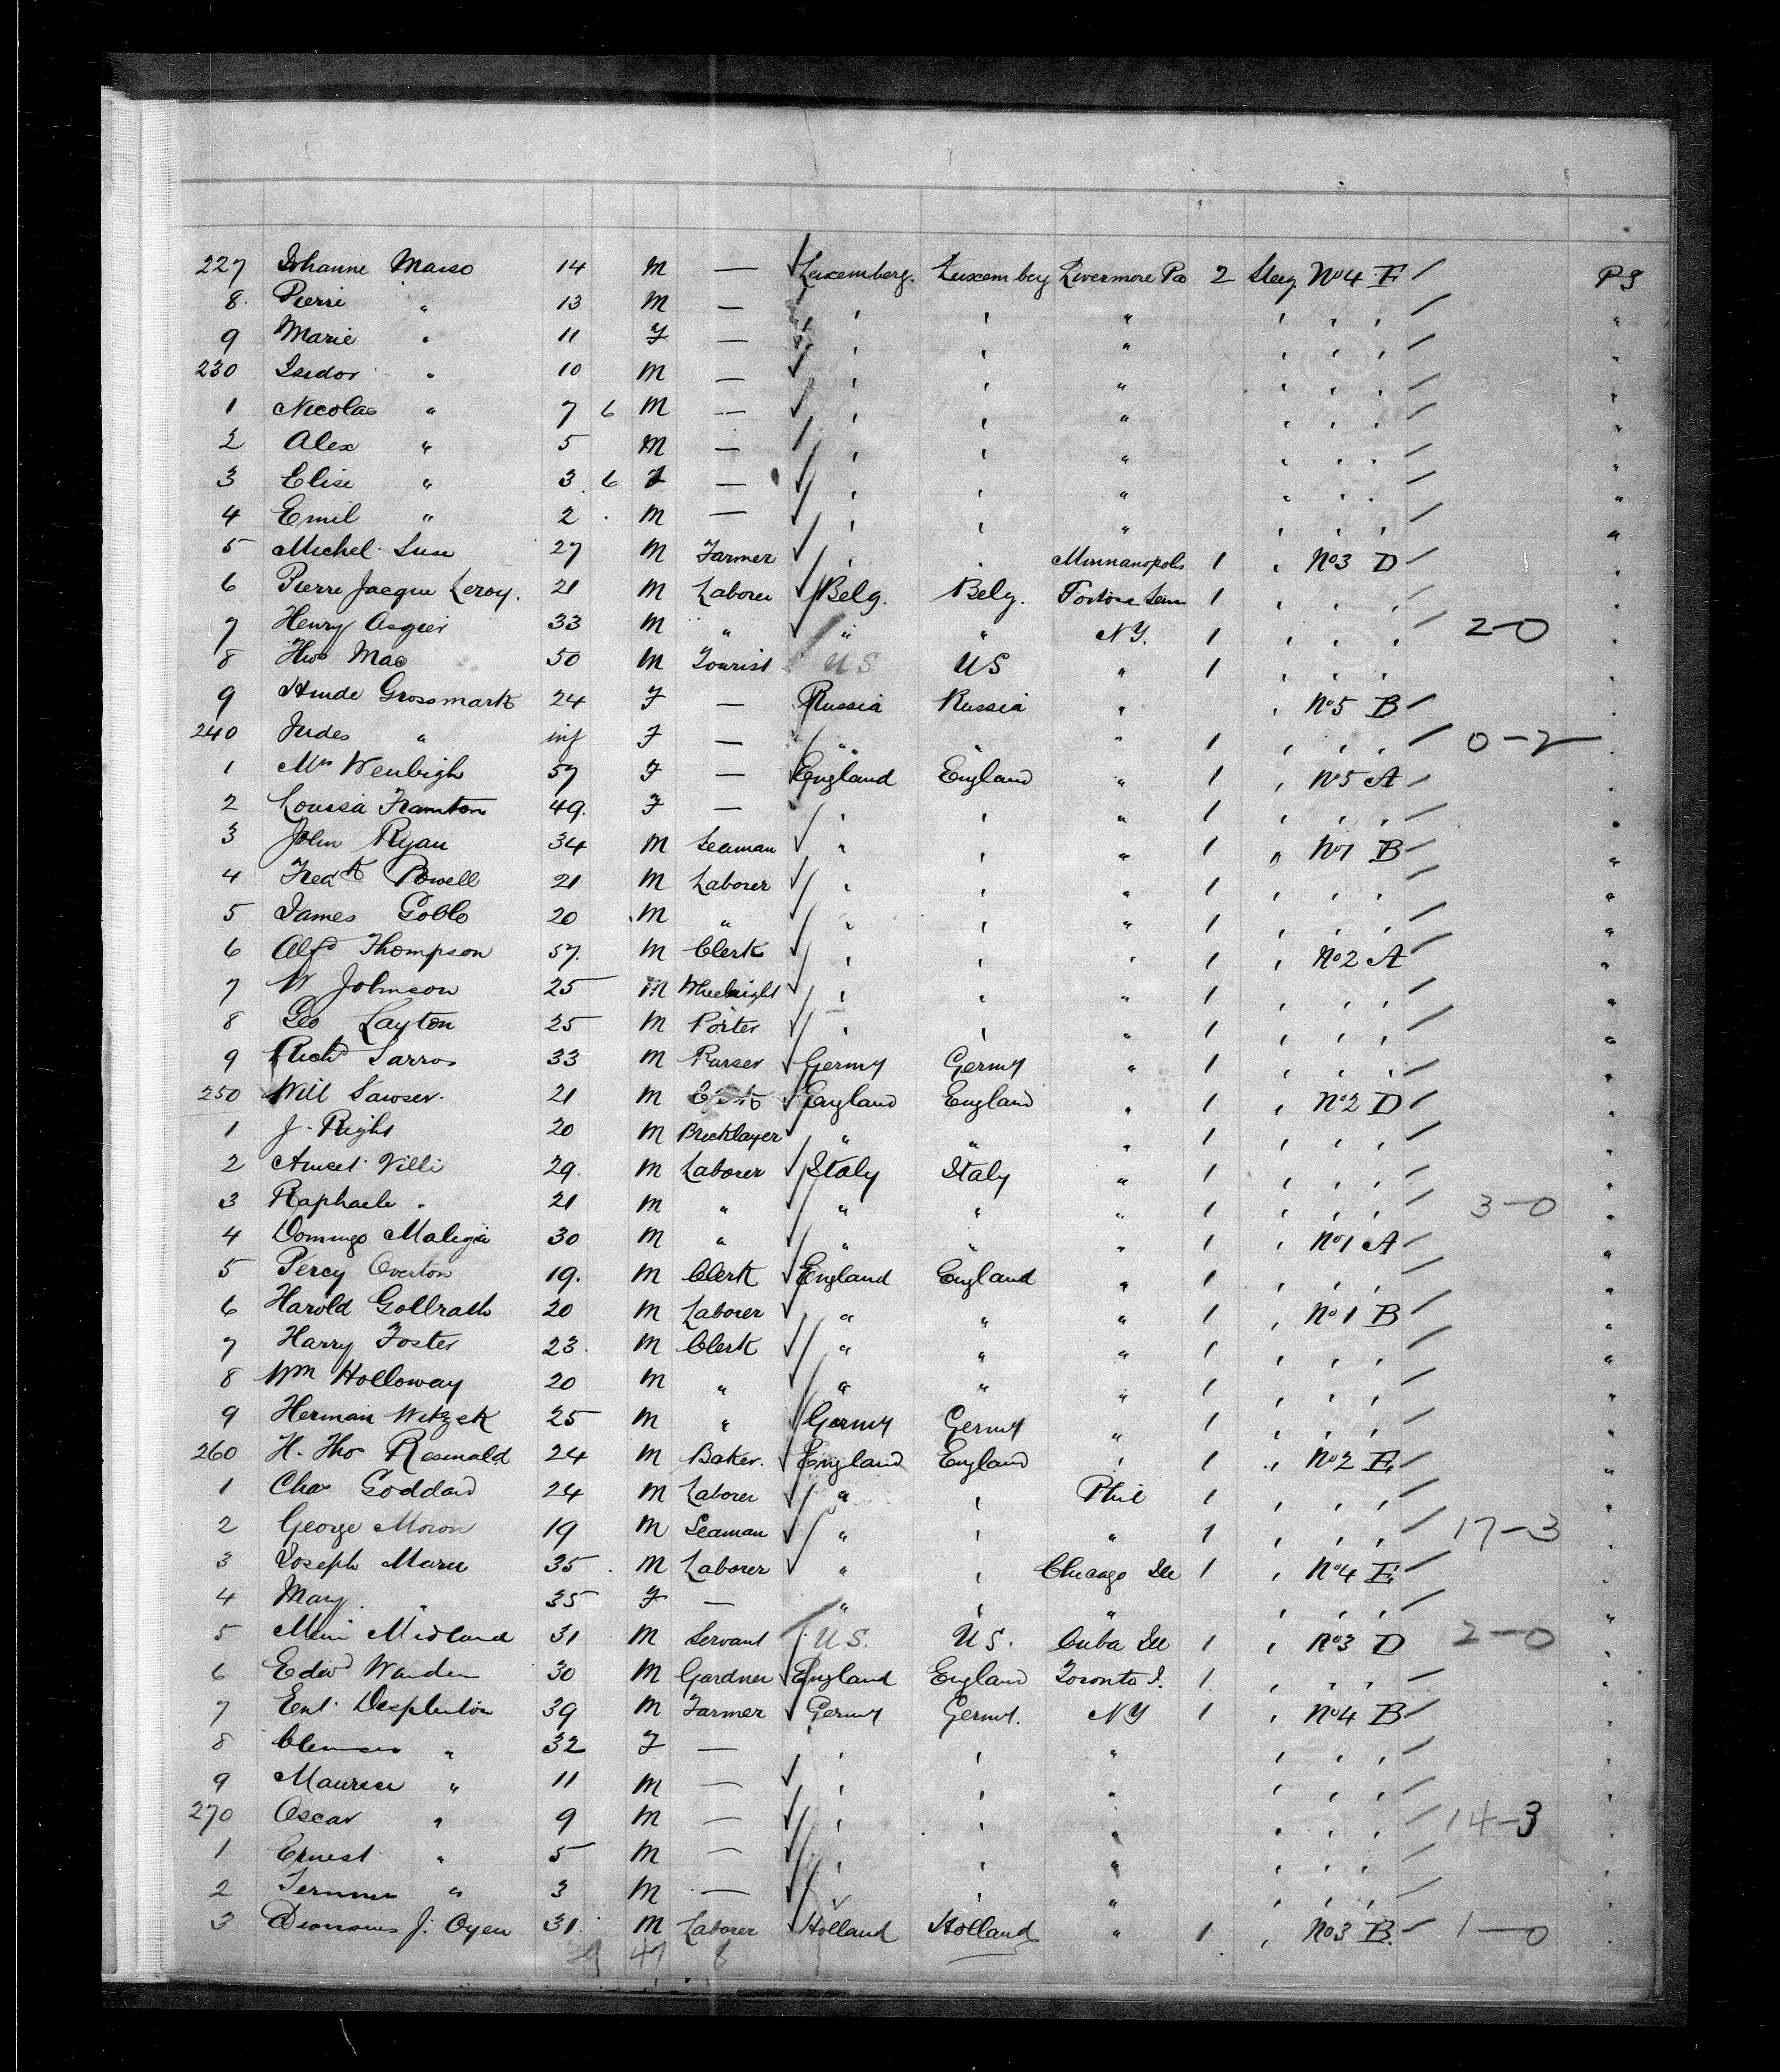 227 Johanne Maiso 14 M — Luxemberg. Luxemberg Livermore Pa 2 Steeg. No 4 E / PS
8. Pierri " 13 M — " " " " " " / "
9 Marie " 11 F — " " " " " " / "
230 Isedor " 10 M — " " " " " " / "
1 Nicolas " 7 6 M — " " " " " " / "
2 Alex " 5 M — " " " " " " / "
3 Elise " 3 6 F — " " " " " " / "
4 Emil " 2 M — " " " " " " / "
5 Michel Luse 27 M Farmer " " Minnanopolis 1 " No 3 D / "
6 Pierre Jacque Leroy. 21 M Laborer Belg. Belg. 1 " " " / "
7 Henry Asquir 33 M " " " N Y. 1 " " " / 2-0 "
8 Mac 50 M Tourist U S US " 1 " " " "
9 Hinde Grossmark 24 F — Russia Russia " " No 5 B / "
240 Judes " inf F — " " " 1 " " " / 0-2 "
1 Mrs Wenbigh 57 F — England England " 1 " No 5 A / "
2 Louisa Framton 49. F — " " " 1 " " " / "
3 John Ryan 34 M Seaman " " " 1 " No 1 B / "
4 Fredk Powell 21 M Laborer " " " 1 " " " / "
5 James Goble 20 M " " " " 1 " " " / "
6 Alfd Thompson 57. M Clerk " " " 1 " No 2 A / "
7 W Johnson 25 M Wheelright " " " 1 " " " / "
8 Geo Layton 25 M Porter " " " 1 " " " / "
9 Richd Sarros 33 M Purser Germy Germy " 1 " " " / "
250 Will Sawser. 21 M England England " 1 " No 2 D / "
1 J. Right 20 M Bricklayer " " " 1 " " " / "
2 Amcet Villi 29. M Laborer Italy Italy " 1 " " " / "
3 Raphaele " 21 M " " " " 1 " " " / 3-0 "
4 Domingo Maligia 30 M " " " " 1 " No 1 A / "
5 Percy Overton 19. M Clerk England England " 1 " " " / "
6 Harold Gollrath 20 M Laborer " " " 1 " No 1 B / "
7 Harry Foster 23. M Clerk " " " 1 " " " / "
8 Wm Holloway 20 M " " " " 1 " " " / "
9 Herman Witzek 25 M " Germy Germy " 1 " " " / "
260 H. Tho Resmald 24 M Baker. England England " 1 " No 2 E / "
1 Chas Goddard 24 M Laborer " " Phil 1 " " " / "
2 George Moron 19 M Seaman " " " 1 " " " / 17-3 "
3 Joseph Maru 35 M Laborer " " Chicago Ill 1 " No 4 E / "
4 Mary " 35 F — " " " " " " / "
5 Midland 31 M Servant U S. U S. Cuba Ill 1 " No 3 D 2-0 "
6 Edwd Warden 30 M Gardner England England Toronto I. 1 " " " / "
7 Ent. Desplenton 39 M Farmer Germy Germy. N Y 1 " No 4 B / "
8 " 32 F — " " " " " " / "
9 Maurice " 11 M — " " " " " " / "
270 Oscar " 9 M — " " " " " " / 14-3 "
1 Ernest " 5 M — " " " " " " / "
2 " 3 M — " " " " " " / "
3 Dionsius J. Oyen 31. M Laborer Holland Holland " 1 " No 3 B. / 1-0 "
39 47 8